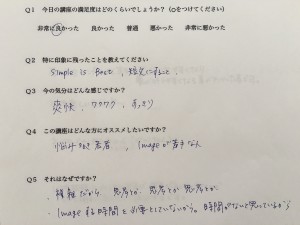 Q1 今日の講座の満足度はどのくらいでしょうか?(○をつけてください)
非常に良かった 良かった 普通 悪かった 非常に悪かった
Q2 特に印象に残ったことを教えてください
Simple is Best、
Q3 今の気分はどんな感じですか?
爽快、ワクワク、すっきり
Q4 この講座はどんな方にオススメしたいですか?
悩み 若者、Imageが苦手な人
Q5 それはなぜですか?
・複雑だから、思考とか 思考とか 思考とか
・Imageする時間を必要としていないから。時間がないと思っているから